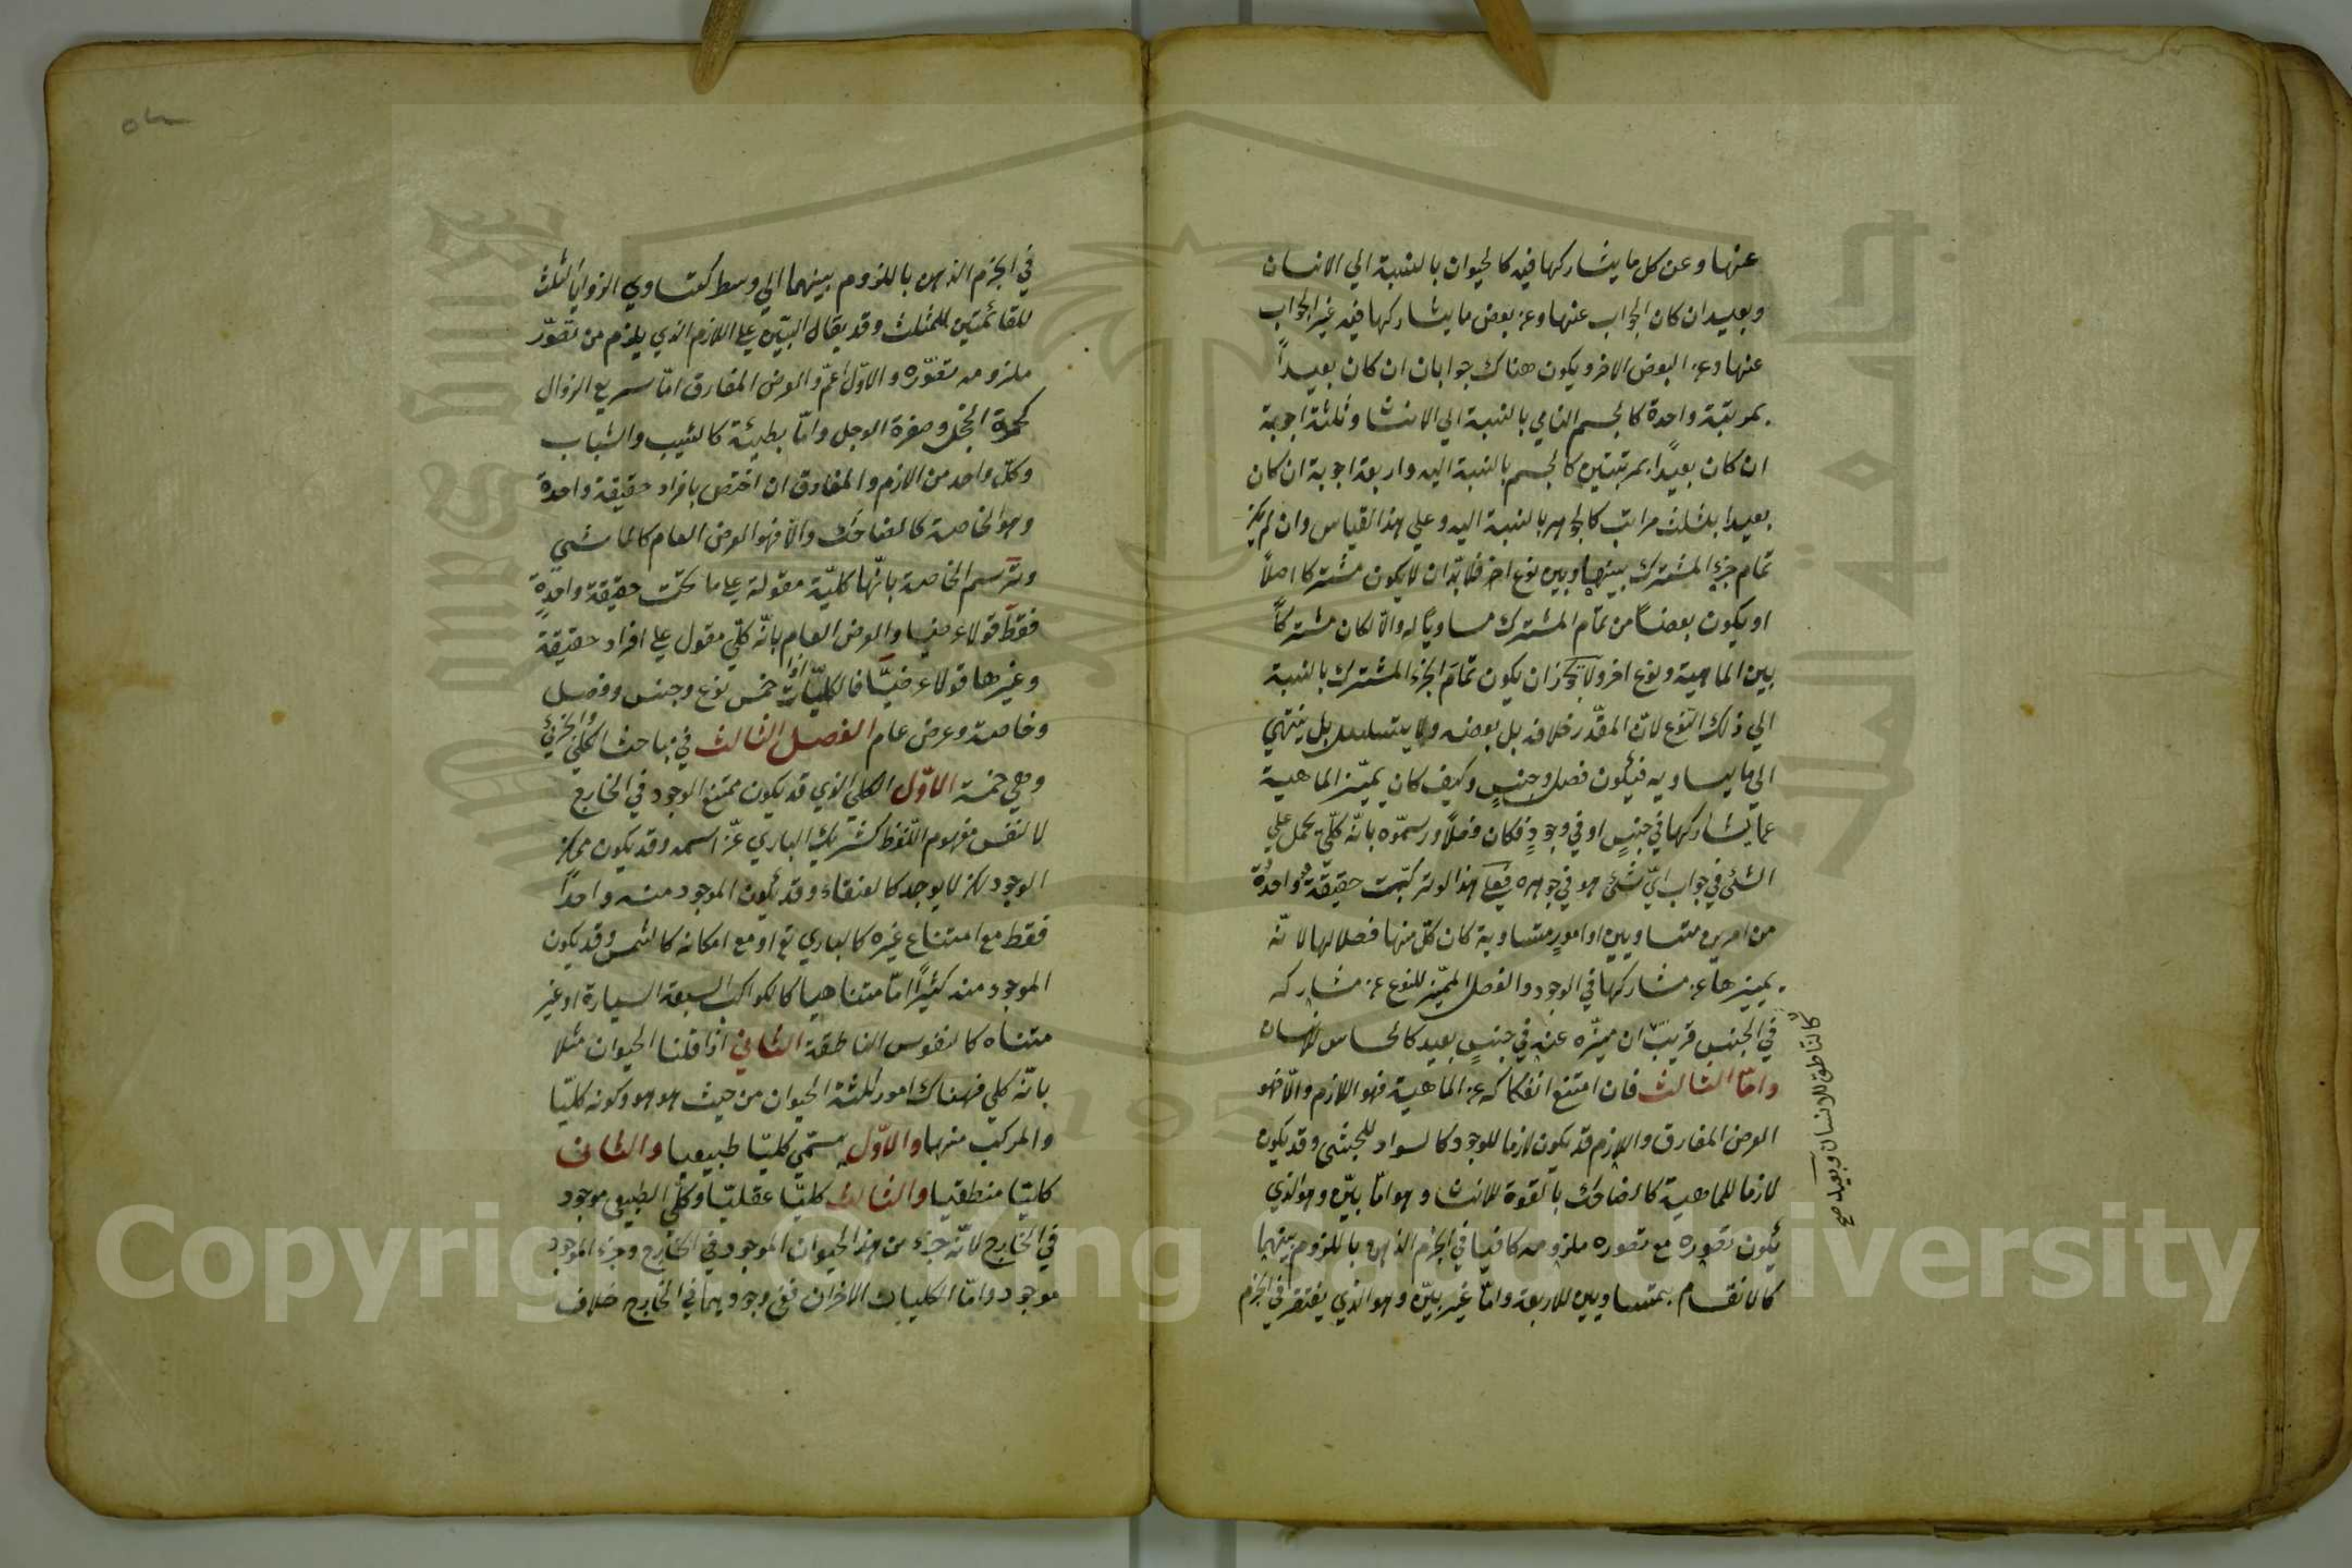 عنها وعن كل ما يشاركها فيه كالحيوان بالنسبة الي الانسان
وبعيد ان كان الجواب عنها وعن بعض ما يشاركها فيه غير الجواب
عنها وعن البعض الاخر ويكون هناك جوابان ان كان بعيداً
بمرتبة واحدة كالجسم النامي بالنسبة الي الانسا وثلثة اجوبة
ان كان بعيداً بمرتبتين كالجسم بالنسبة اليه واربعة اجوبة ان كان
بعيدا بثلث مراتب كالجوهر بالنسبة اليه وعلي هذا القياس وان لم يكن
تمام جزء المشترك بينها وبين نوع اخر فلا بدّ ان لا يكون مشتركا اصلاً
او يكون بعضاً من تمام المشترك مساوياً له والّا لكان مشتركاً
بين الماهية ونوع اخر ولا يجوز ان يكون تمام الجزء المشترك بالنسبة
الي ذلك النّوع لانّ المقدّر خلافه بل بعضه ولا يتسلسل بل ينتهي
الي ما يساويه فيكون فصل جنسٍ وكيف كان يميّز الماهية
عما يشاركها في جنسٍ او في وجودٍ فكان فصلاً ورسمّوه بانّه كلّي يحمل علي
الشئ في جواب ايّ شئ هو في جوهره فعلي هذا لو تركّبت حقيقة واحدة
من امرين متساويين او امورٍ متساوية كان كلّ منها فصلا لها لانّه
يميزها عن مشاركها في الوجود والفصل المميّز للنوع عن مشاركه
في الجنس قريبٌ ان ميّزه عنه في جنسٍ بعيد كالحساس للانسان
كالنّاطق للانسان وبعيد صح
وامّا الثالث فان امتنع انفكاكه عن الماهية فهو اللازم والّا فهو
العرض المفارق واللازم قد يكون لازما للوجود كالسواد للحبشي وقد يكون
لازما للماهية كالضاحك بالقوة للانسا وهو امّا بيّن وهو الذي
يكون تصوره مع تصوره ملزومه كافيا في الجزم الذهن باللزوم بينهما
كالانقسام بمتساويين للاربعة وامّا غير بيّن وهو الذي يفتقر في الجزم
في الجزم الذهن باللزوم بينهما الي وسط كتساوي الزوايا الثلث
للقائمتين للمثلث وقد يقال البيّن علي اللازم الذي يلزم من تصوّر
ملزومه تصوّره والاوّل اعمّ والعرض المفارق امّا سريع الزوال
كحمرة الخجل وصفرة الوجل وامّا بطيئة كالشيب والشباب
وكلّ واحد من الازم والمفارق ان اختص بافراد حقيقة واحدة
وهو الخاصة كالضاحك والّا فهو العرض العام كالماشي
وترسم الخاصة بانّها كليّة مقولة علي ما تحت حقيقة واحدةٍ
فقط قولا عرضيا والعرض العام بانّه كلّي مقول علي افراد حقيقة
وغيرها قولا عرضيّاً فالكليّات اذا خمس نوع وجنس وفصل
وخاصة وعرض عام الفصل الثالث في مباحث الكلّي والجزئي
وهي خمسة الاوّل الكلي الذي قد يكون ممتنع الوجود في الخارج
لا لنفس مفهوم اللّفظ كشريك الباري عزّ اسمه وقد يكون ممكن
الوجود لكن لا يوجد كالعنقاء وقد يكون الموجود منه واحداً
فقط مع امتناع غيره كالباري تع او مع امكانه كالشمس وقد يكون
الموجود منه كثيراً امّا متناهيا كالكواكب السبعة السيارة او غير
متناه كالنفوس الناطقة الثاني اذا قلنا الحيوان مثلا
بانّه كلي فهناك امور ثلثة الحيوان من حيث هو هو وكونه كليّا
والمركب منهما والاوّل يسمّي كليّا طبيعيا والثاني
كليّا منطقيا والثالث كليّا عقليّا وكلّي الطبيعي موجود
في الخارج لانّه جزء من هذا الحيوان الموجود في الخارج وجزء الموجود
موجود وامّا الكليات الاخران ففي وجودهما في الخارج خلاف
Copyright © King Saud University
1957